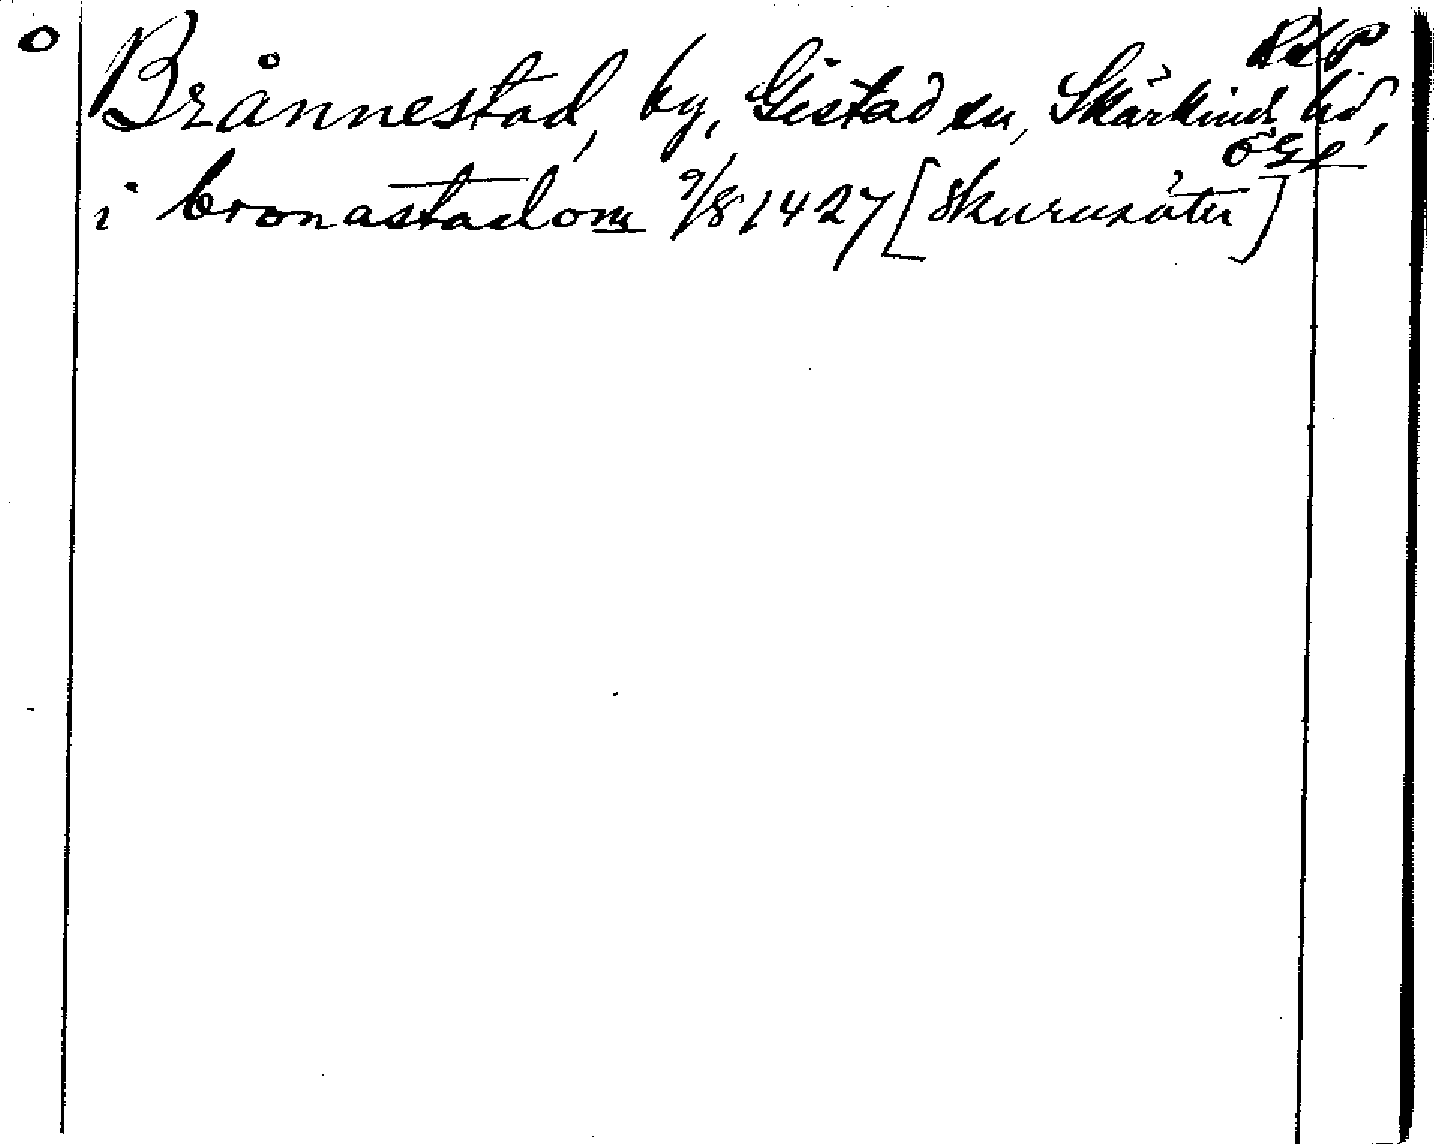 O
RAP
Brånnestad, by, Gistad sn, Skärkinds hd,
Ögl
i bronastadom 9/8 1427 [Skurusäter]